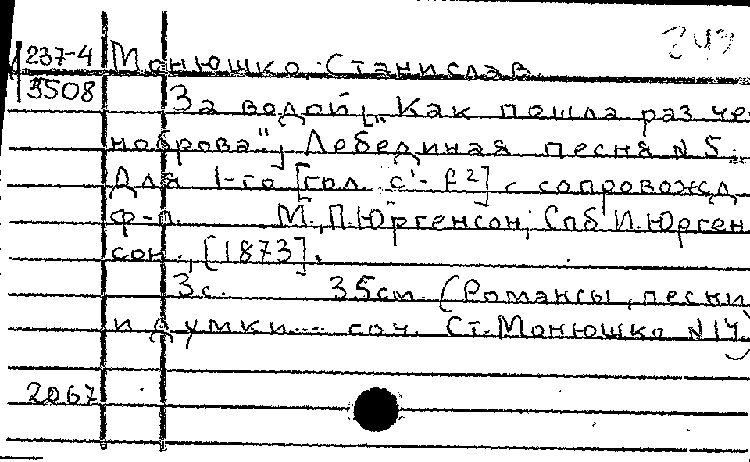 247
237-4 Монюшко, Станислав.
3508
За водой ["Как пошла раз че
ноброва"], Лебединая песня N 5.
Для 1-го [гол. c¹-f²] с сопровожд.
ф-п. М., П.Юргенсон; Спб И.Юрген
сон, [1873].
3с. 35см (Романсы, песни
и думки... соч. Ст.Монюшко N 14)
2067